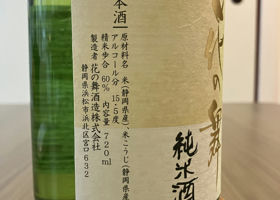 花の舞
純米酒
本酒
原材料名 米(静岡県産)、米こうじ(静岡県産
アルコール分 15.5度
精米歩合 60% 内容量 720ml
製造者 花の舞酒造株式会社
静岡県浜松市浜北区宮口632